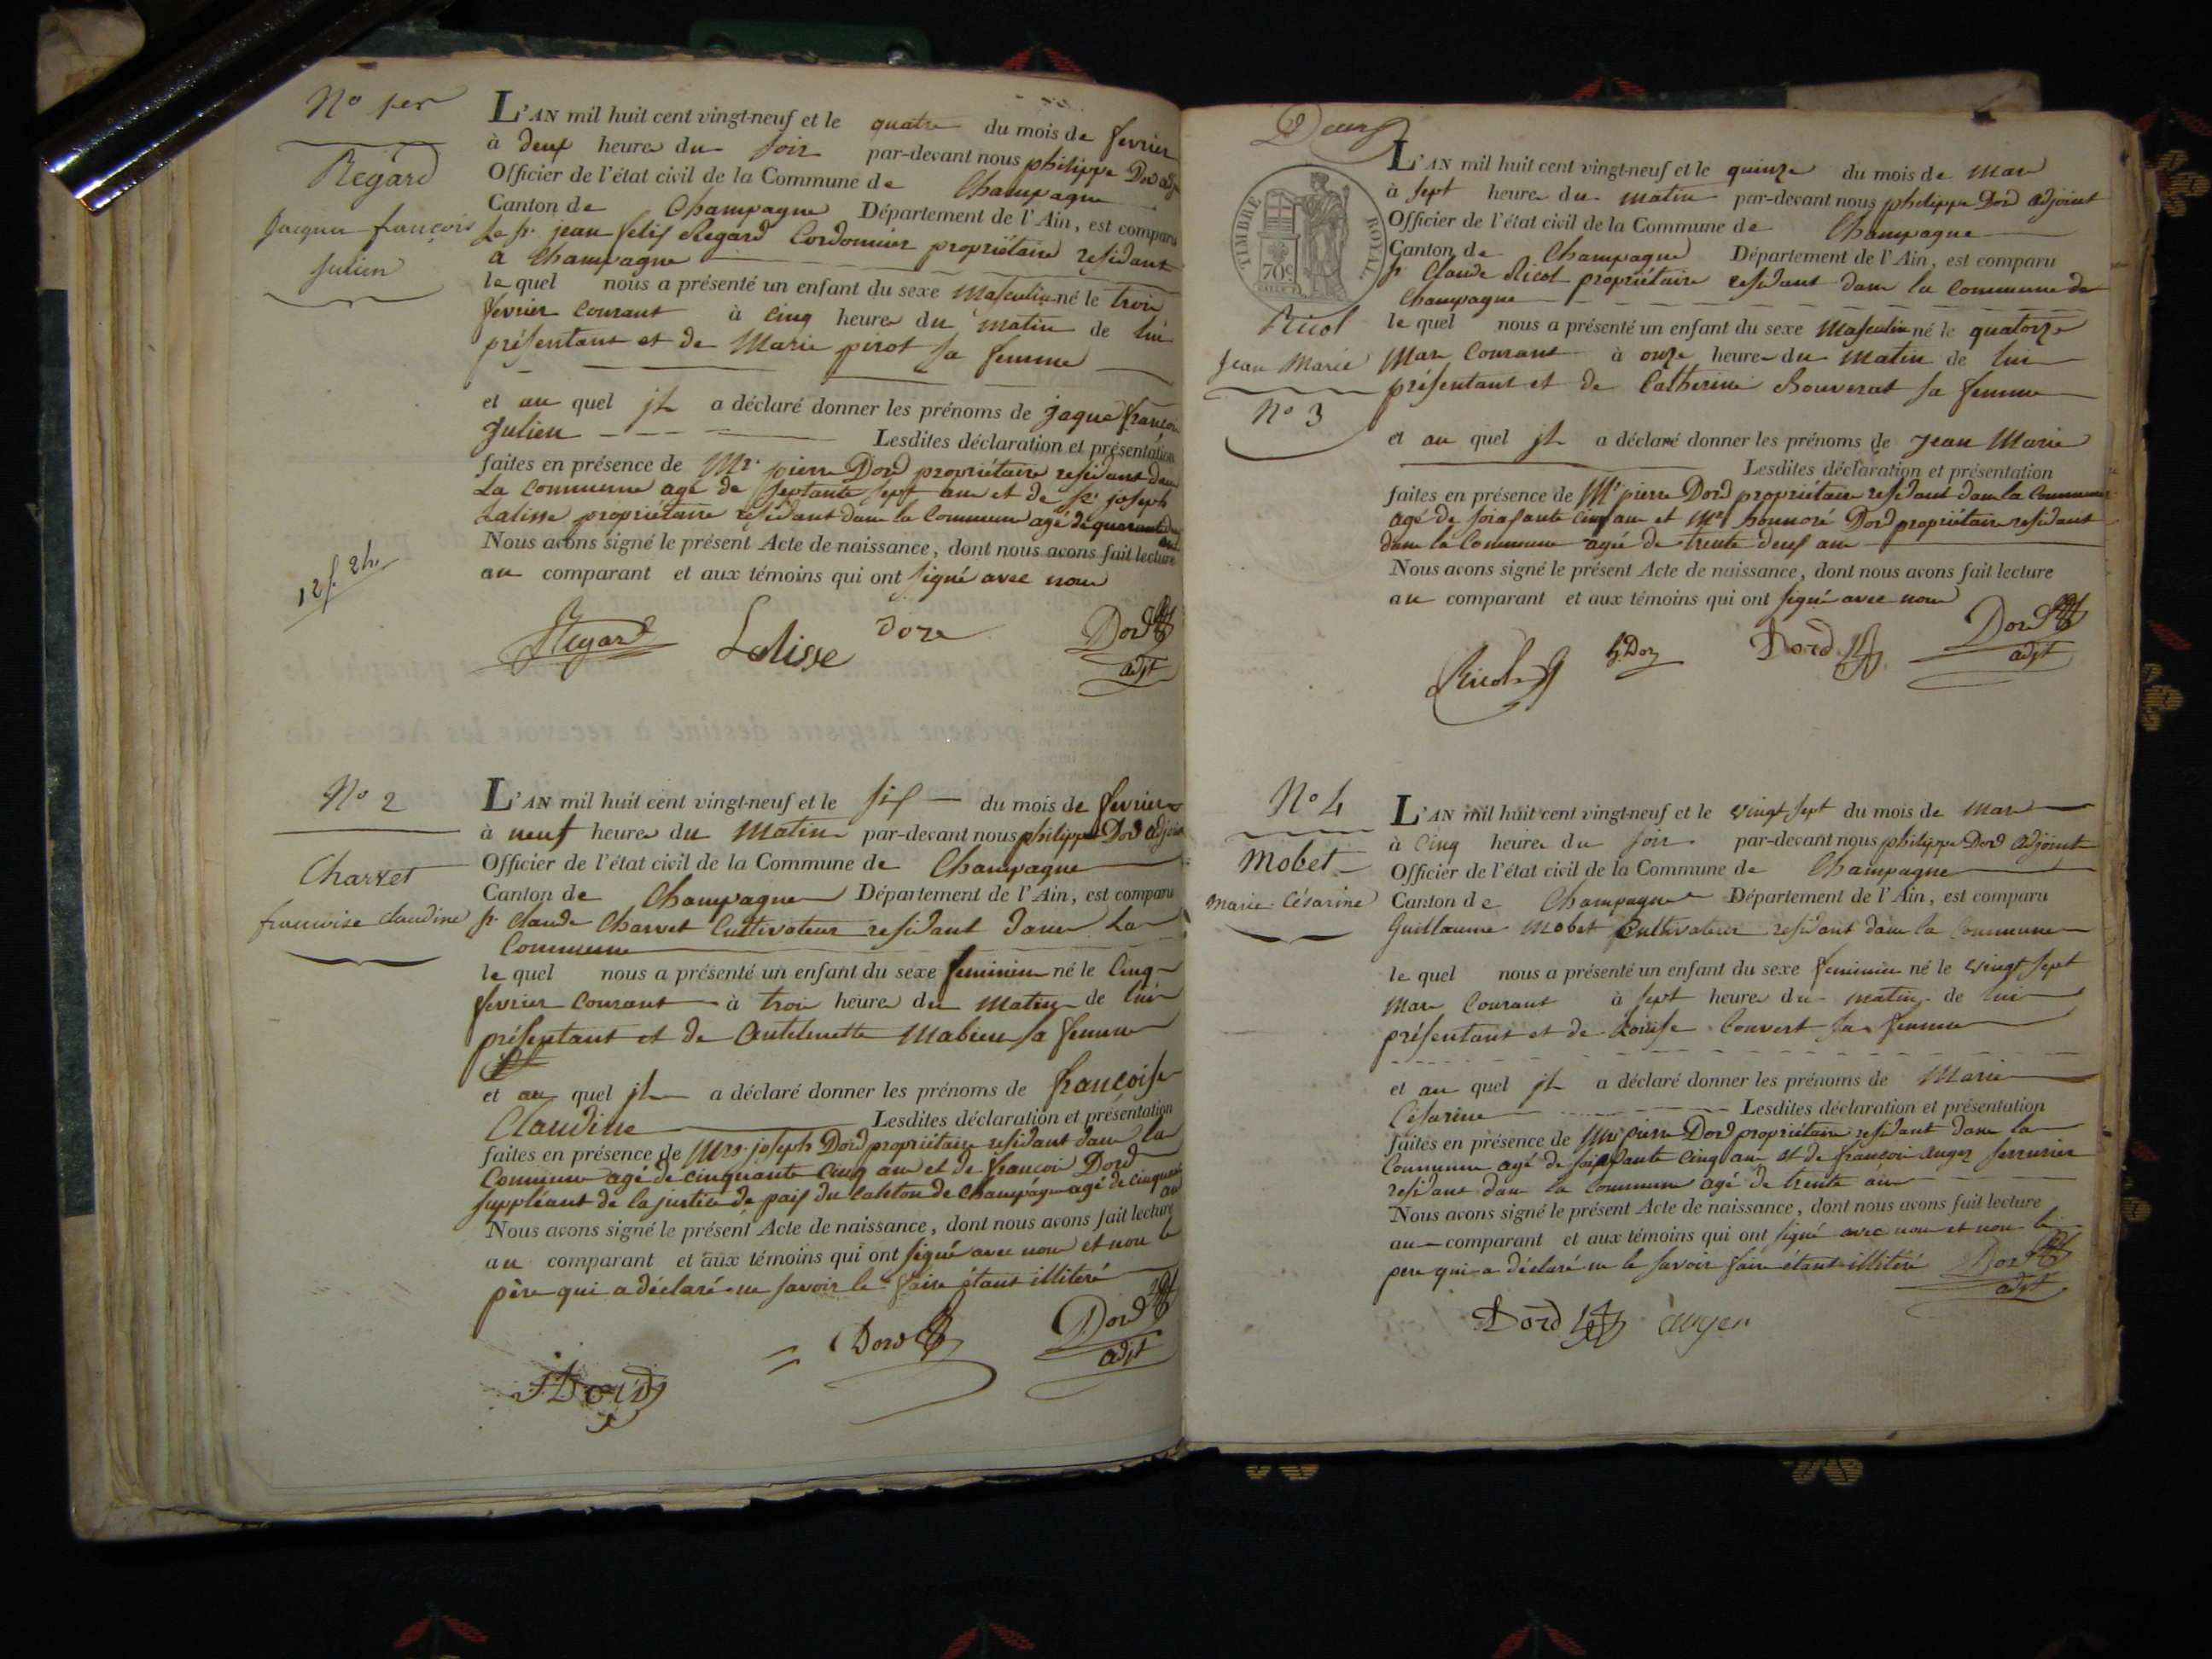 No 1er
Regard
Jacques françois
Julien
L'AN mil huit cent vingt-neuf et le quatre du mois de fevrier
à deux heures du soir par-devant nous philippe Dord adjt
Officier de l'état civil de la Commune de Champagne
Canton de Champagne Département de l'Ain, est comparu
Le sr. jean felix Regard Cordonnier propriétaire residant
a Champagne
le quel nous a présenté un enfant du sexe Masculin né le trois
fevrier Courant à cinq heures du matin de lui
présentant et de Marie pirot sa femme
et au quel il a déclaré donner les prénoms de jaques françois
Julien Lesdites déclaration et présentation
faites en présence de Mr. pierre Dord propriétaire residant dans
La commune agé de septante sept ans et de sr. joseph
Lalisse propriétaire residant dans la Commune agé de quarante
Nous avons signé le présent Acte de naissance, dont nous avons fait lecture
au comparant et aux témoins qui ont signé avec nous
Regard Lalisse Dord adjt
No 2
Charvet
francoise claudine
L'AN mil huit cent vingt-neuf et le six du mois de fevrier
à neuf heures du matin par-devant nous philippe Dord adjoint
Officier de l'état civil de la Commune de Champagne
Canton de Champagne Département de l'Ain, est comparu
sr. Claude Charvet Cultivateur residant dans La
Commune
le quel nous a présenté un enfant du sexe feminin né le cinq
fevrier Courant à trois heures du matin de lui
présentant et de Antelmette Mabieu sa femme
et au quel il a déclaré donner les prénoms de françoise
Claudine Lesdites déclaration et présentation
faites en présence de Mrs. joseph Dord propriétaire residant dans la
Commune agé de cinquante cinq ans et de françois Dord
suppléant de la justice de paix du canton de Champagne agé de cinquante
ans
Nous avons signé le présent Acte de naissance, dont nous avons fait lecture
au comparant et aux témoins qui ont signé avec nous et non le
père qui a déclaré ne savoir le faire étant illiteré
Dord Dord Dord adjt
Deux
TIMBRE ROYAL
70c
Ricol
Jean Marie
No 3
L'AN mil huit cent vingt-neuf et le quinze du mois de Mars
à sept heures du matin par-devant nous philippe Dord adjoint
Officier de l'état civil de la Commune de Champagne
Canton de Champagne Département de l'Ain, est comparu
sr. Claude Ricol propriétaire residant dans la commune de
Champagne
le quel nous a présenté un enfant du sexe Masculin né le quatorze
Mars Courant à onze heures du matin de lui
présentant et de Catherine Bouverat sa femme
et au quel il a déclaré donner les prénoms de Jean Marie
Lesdites déclaration et présentation
faites en présence de Mr. pierre Dord propriétaire residant dans la Commune
agé de soixante cinq ans et Mr honnoré Dord propriétaire residant
dans la Commune agé de trente deux ans
Nous avons signé le présent Acte de naissance, dont nous avons fait lecture
au comparant et aux témoins qui ont signé avec nous
Ricol Dord Dord adjt
No 4
Mobet
marie Césarine
L'AN mil huit cent vingt-neuf et le vingt sept du mois de Mars
à cinq heures du soir par-devant nous philippe Dord adjoint
Officier de l'état civil de la Commune de Champagne
Canton de Champagne Département de l'Ain, est comparu
Guillaume Mobet Cultivateur residant dans la Commune
le quel nous a présenté un enfant du sexe feminin né le vingt sept
Mars Courant à sept heures du matin de lui
présentant et de Louise Convert sa femme
et au quel il a déclaré donner les prénoms de Marie
Césarine Lesdites déclaration et présentation
faites en présence de Mr. pierre Dord propriétaire residant dans la
Commune agé de soixante cinq ans et de françois auger serrurier
residant dans la commune agé de trente ans
Nous avons signé le présent Acte de naissance, dont nous avons fait lecture
au comparant et aux témoins qui ont signé avec nous et non le
pere qui a déclaré ne le savoir faire étant illitéré Dord adjt
Dord auger